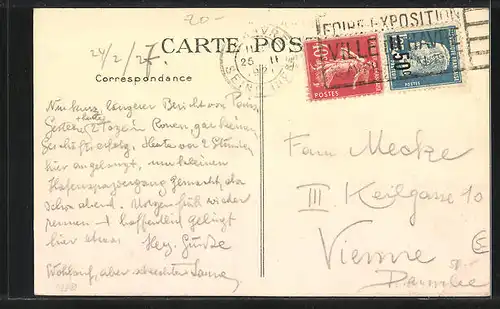 20.-
24/2/27.
CARTE POSTALE
FOIRE EXPOSITION
VILLE HAVRE
25 II
SEINE INFRE
POSTES
POSTES
Correspondance
Nur kurz, längerer Bericht von Paris.
Gestern & heute 2 Tage in Rouen, gar keinen
Geschäftserfolg. Heute vor 2 Stunden
hier angelangt, nun kleinen
Hafenspaziergang gemacht, da
schon abend. Morgen früh wieder
rennen + hoffentlich gelingt
hier etwas. Hrzl. Grüße
Wohlauf, aber schlechter Laune
Frau
III Keilgasse 10
Vienne